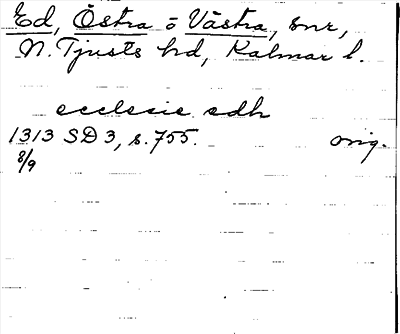 Ed, Östra o Västra, snr,
N. Tjusts hd, Kalmar l.
ecclesie edh
1313 SD 3, s. 755. orig.
8/9